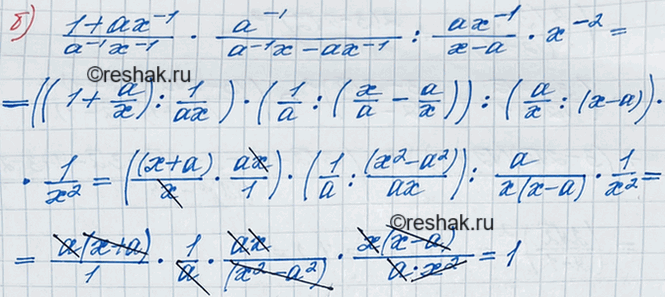 б) (1+ax⁻¹)/(a⁻¹x⁻¹) · a⁻¹/(a⁻¹x-ax⁻¹) : (ax⁻¹)/(x-a) · x⁻² =
©reshak.ru
= ((1+a/x) : 1/(ax)) · (1/a : (x/a - a/x)) : (a/x : (x-a)) ·
· 1/x² = ((x+a)/x · ax/1) · (1/a : (x²-a²)/(ax)) : a/(x(x-a)) · 1/x² =
©reshak.ru
= a(x+a)/1 · 1/a · ax/(x²-a²) · x(x-a)/(a·x²) = 1
©reshak.ru